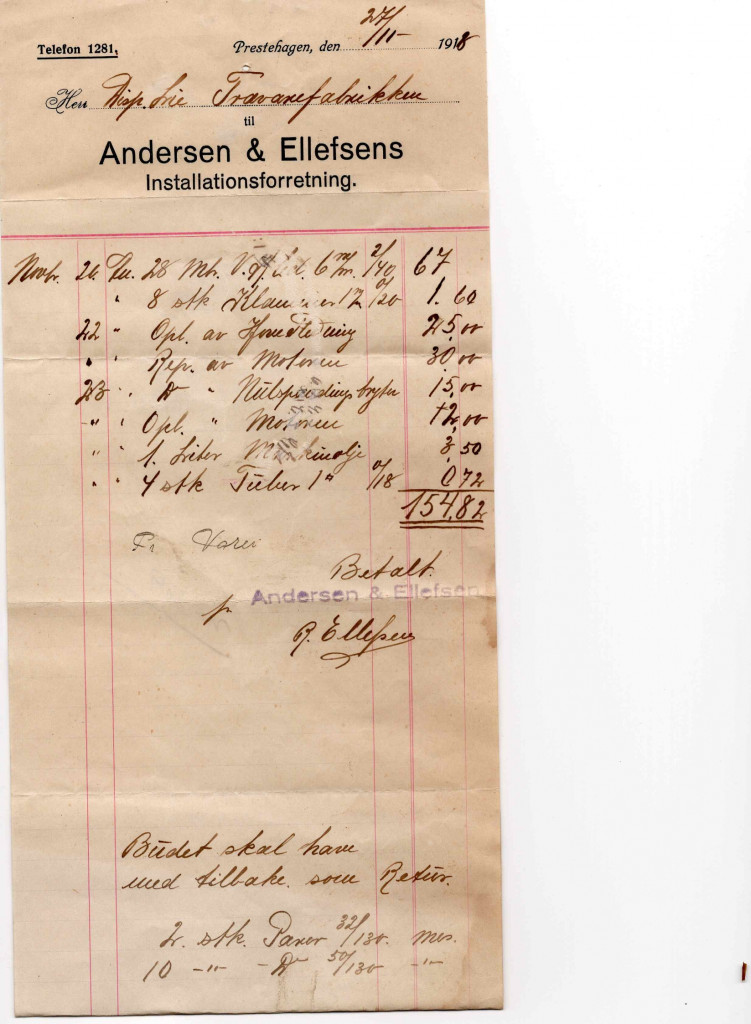 Telefon 1281,
Prestehagen, den 27/11- 1918
Herr Disp. Lie Trævarefabrikken
til
Andersen & Ellefsens
Installationsforretning.
Novbr. 26 28 Mtr. 6 m/m. 2/40 67
" 8 stk Klammer 1/2 0/20 1.60
22 " Opl. av Hovedledning 25,00
" " Rep. av Motoren 30.00
23 " Do " Nulspendingsbryter 15,00
-" " Opl. " Motoren 12,00
" " 1. Liter Maskinolje 3,50
" " 4 stk Tüber 1" 0/18 0,72
154,82
Betalt.
Andersen & Ellefsen
R. Ellefsen
Büdet skal have
med tilbake. som Retür.
2. stk. Pærer 32/130. mes.
10 -"- -Do 50/130 -"-